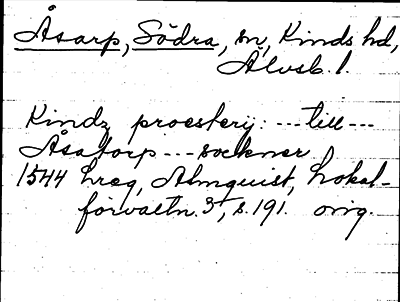 Åsarp, Södra, sn, Kinds hd,
Älvsb. l.
Kindz proestery: --- till ---
Åsatorp --- sockner
1544 hreg, Almquist, Lokal-
förvaltn. 3, s. 191. orig.